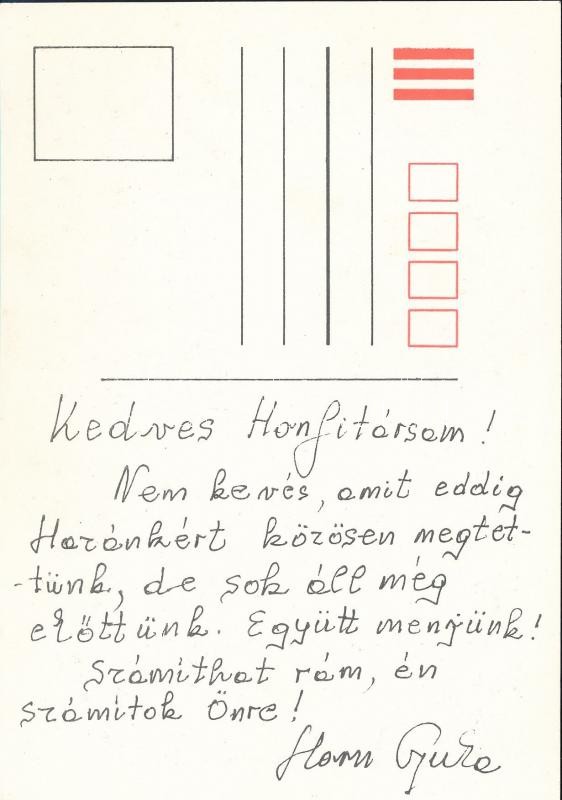 Kedves Honfitársam!
Nem kevés, amit eddig
Hazánkért közösen megtet-
-tünk, de sok áll még
előttünk. Együtt menjünk!
Számíthat rám, én
számítok Önre!
Horn Gyula